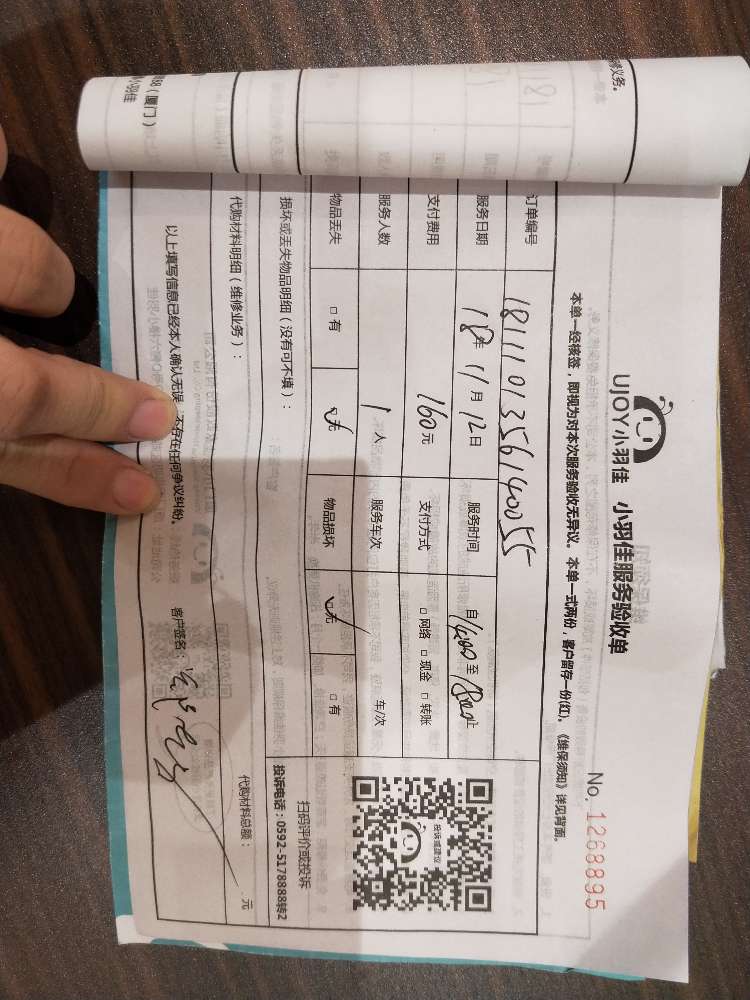 UJOY小羽佳 小羽佳服务验收单
No. 1268895
本单一经核签，即视为对本次服务验收无异议。本单一式两份，客户留存一份(红)。《维保须知》详见背面。
订单编号 1811101356140055
服务日期 18年 11月 12日 服务时间 自14:00至18:00止
支付费用 160元 支付方式 □网络 □现金 □转账
服务人数 1人 服务车次 车/次
物品丢失 □有 □无 物品损坏 □无 □有
投诉或建议
扫码评价或投诉
投诉电话：0592-5178888转2
损坏或丢失物品明细（没有可不填）：
代购材料明细（维修业务）： 代购材料总额： 元
以上填写信息已经本人确认无误，不存在任何争议纠纷。 客户签名：
修义务。
（厦门）
小羽佳